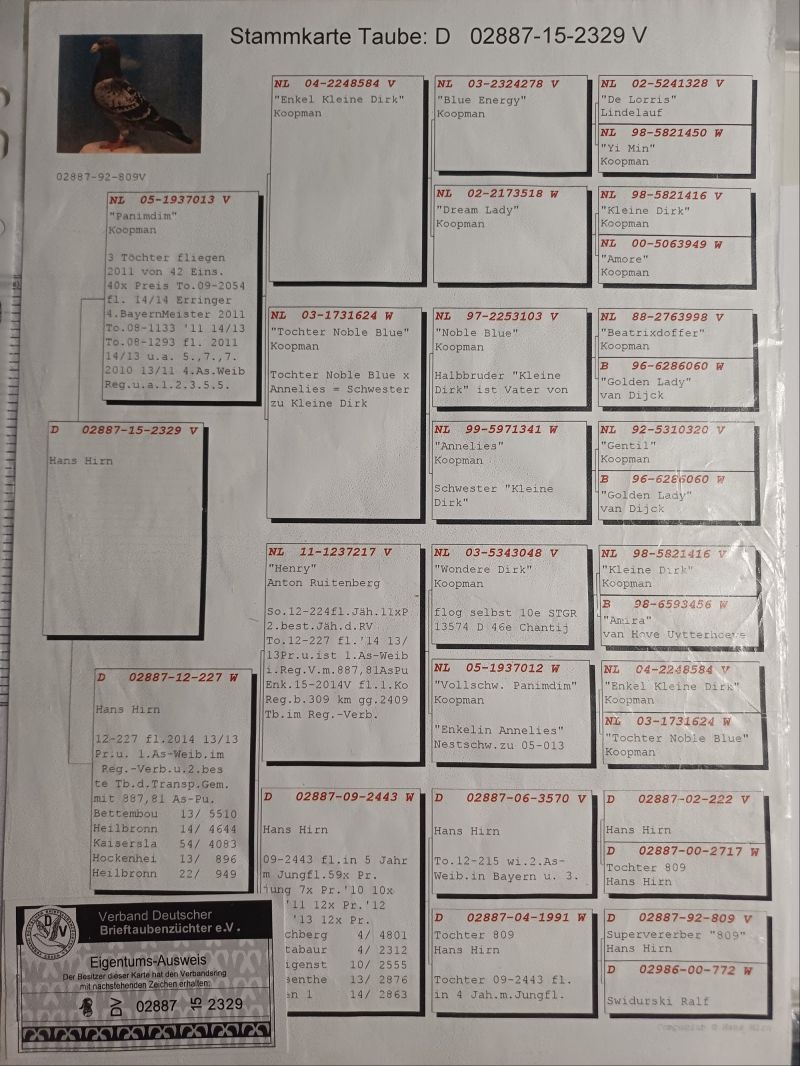 Stammkarte Taube: D 02887-15-2329 V
02887-92-809V
D 02887-15-2329 V
Hans Hirn
NL 05-1937013 V
"Panimdim"
Koopman
3 Töchter fliegen
2011 von 42 Eins.
40x Preis To.09-2054
fl. 14/14 Erringer
4.BayernMeister 2011
To.08-1133 '11 14/13
To.08-1293 fl. 2011
14/13 u.a. 5.,7.,7.
2010 13/11 4.As.Weib
Reg.u.a.1.2.3.5.5.
D 02887-12-227 W
Hans Hirn
12-227 fl.2014 13/13
Pr.u. 1.As-Weib.im
Reg.-Verb.u.2.bes
te Tb.d.Transp.Gem.
mit 887,81 As-Pu.
Bettembou 13/ 5510
Heilbronn 14/ 4644
Kaisersla 54/ 4083
Hockenhei 13/ 896
Heilbronn 22/ 949
NL 04-2248584 V
"Enkel Kleine Dirk"
Koopman
NL 03-1731624 W
"Tochter Noble Blue"
Koopman
Tochter Noble Blue x
Annelies = Schwester
zu Kleine Dirk
NL 11-1237217 V
"Henry"
Anton Ruitenberg
So.12-224fl.Jäh.11xP
2.best.Jäh.d.RV
To.12-227 fl.'14 13/
13Pr.u.ist 1.As-Weib
i.Reg.V.m.887,81AsPu
Enk.15-2014V fl.1.Ko
Reg.b.309 km gg.2409
Tb.im Reg.-Verb.
D 02887-09-2443 W
Hans Hirn
09-2443 fl.in 5 Jahr
m Jungfl.59x Pr.
jung 7x Pr.'10 10x
'11 12x Pr.'12
'13 12x Pr.
chberg 4/ 4801
tabaur 4/ 2312
igenst 10/ 2555
senthe 13/ 2876
en 1 14/ 2863
NL 03-2324278 V
"Blue Energy"
Koopman
NL 02-2173518 W
"Dream Lady"
Koopman
NL 97-2253103 V
"Noble Blue"
Koopman
Halbbruder "Kleine
Dirk" ist Vater von
NL 99-5971341 W
"Annelies"
Koopman
Schwester "Kleine
Dirk"
NL 03-5343048 V
"Wondere Dirk"
Koopman
flog selbst 10e STGR
13574 D 46e Chantij
NL 05-1937012 W
"Vollschw. Panimdim"
Koopman
"Enkelin Annelies"
Nestschw.zu 05-013
D 02887-06-3570 V
Hans Hirn
To.12-215 wi.2.As-
Weib.in Bayern u. 3.
D 02887-04-1991 W
Tochter 809
Hans Hirn
Tochter 09-2443 fl.
in 4 Jah.m.Jungfl.
NL 02-5241328 V
"De Lorris"
Lindelauf
NL 98-5821450 W
"Yi Min"
Koopman
NL 98-5821416 V
"Kleine Dirk"
Koopman
NL 00-5063949 W
"Amore"
Koopman
NL 88-2763998 V
"Beatrixdoffer"
Koopman
B 96-6286060 W
"Golden Lady"
van Dijck
NL 92-5310320 V
"Gentil"
Koopman
B 96-6286060 W
"Golden Lady"
van Dijck
NL 98-5821416 V
"Kleine Dirk"
Koopman
B 98-6593456 W
"Amira"
van Hove Uytterhoeve
NL 04-2248584 V
"Enkel Kleine Dirk"
Koopman
NL 03-1731624 W
"Tochter Noble Blue"
Koopman
D 02887-02-222 V
Hans Hirn
D 02887-00-2717 W
Tochter 809
Hans Hirn
D 02887-92-809 V
Supervererber "809"
Hans Hirn
D 02986-00-772 W
Swidurski Ralf
© Hans Hirn
Verband Deutscher
Brieftaubenzüchter e.V.
Eigentums-Ausweis
Der Besitzer dieser Karte hat den Verbandsring
mit nachstehenden Zeichen erhalten:
DV 02887 15 2329